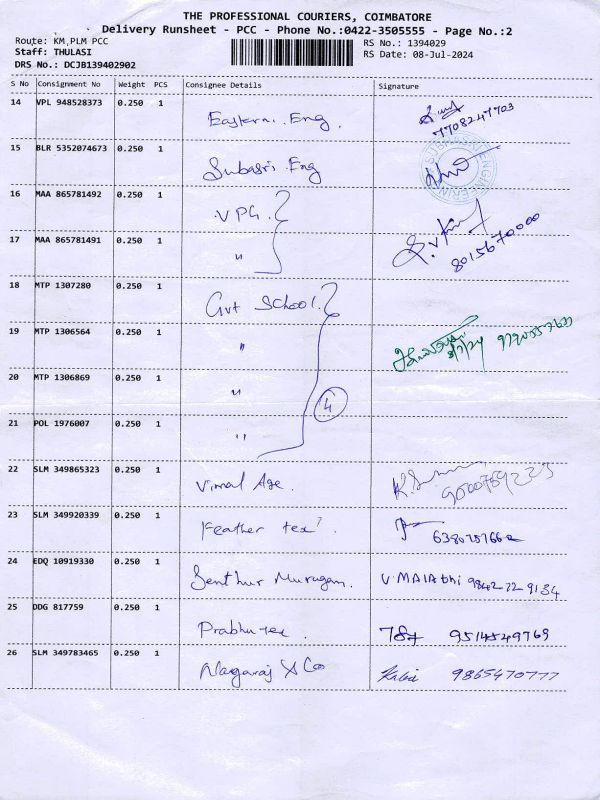 THE PROFESSIONAL COURIERS, COIMBATORE
Delivery Runsheet - PCC - Phone No.:0422-3505555 - Page No.:2
Route: KM,PLM PCC RS No.: 1394029
Staff: THULASI RS Date: 08-Jul-2024
DRS No.: DCJB139402902
S No Consignment No Weight PCS Consignee Details Signature
14 VPL 948528373 0.250 1 Eastern. Eng. 7708247703
15 BLR 5352074673 0.250 1 Subasri Eng
16 MAA 865781492 0.250 1 VPG.
17 MAA 865781491 0.250 1 " 8015670000
18 MTP 1307280 0.250 1 Gvt School.
19 MTP 1306564 0.250 1 " 8/7/24
20 MTP 1306869 0.250 1 "
4
21 POL 1976007 0.250 1 "
22 SLM 349865323 0.250 1 Vimal Age.
23 SLM 349920339 0.250 1 Feather tex
24 EDQ 10919330 0.250 1 Senthur Murugan. V. MAlAthi 9842729134
25 DDG 817759 0.250 1 Prabhu tex. 9514549769
26 SLM 349783465 0.250 1 Nagaraj & Co 9865470777